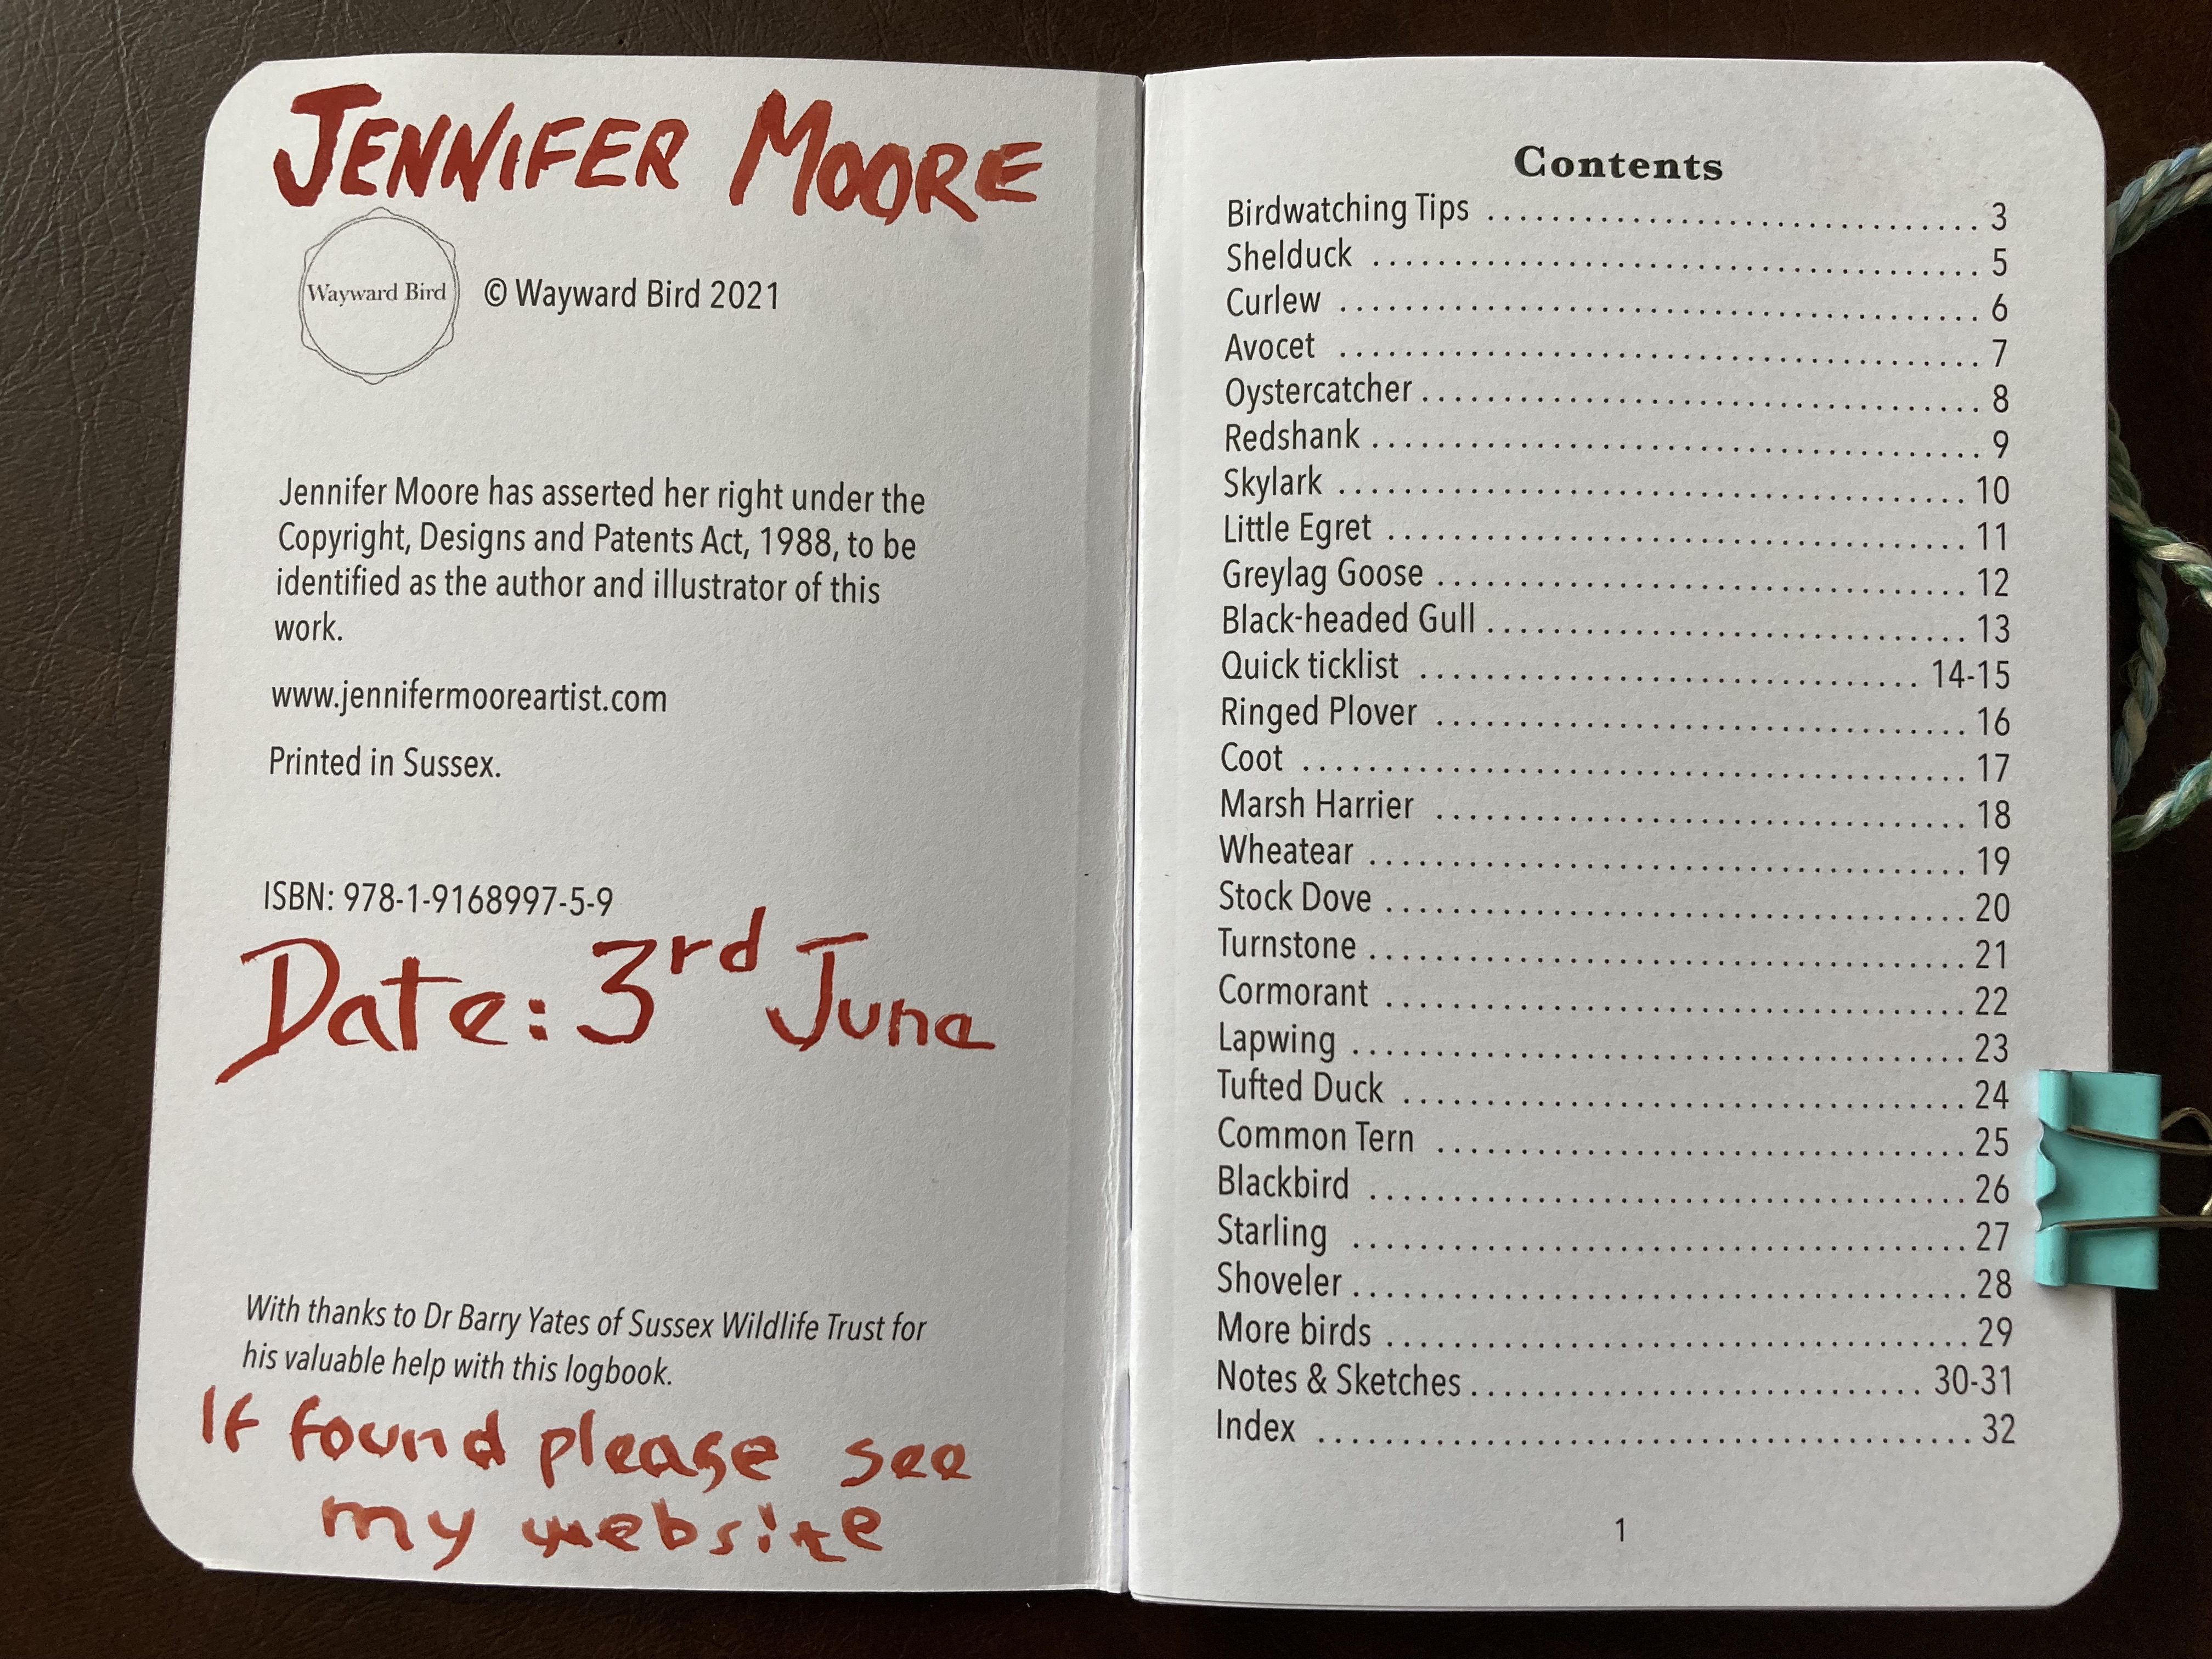 JENNIFER MOORE
Wayward Bird
© Wayward Bird 2021
Jennifer Moore has asserted her right under the
Copyright, Designs and Patents Act, 1988, to be
identified as the author and illustrator of this
work.
www.jennifermooreartist.com
Printed in Sussex.
ISBN: 978-1-9168997-5-9
Date: 3rd June
With thanks to Dr Barry Yates of Sussex Wildlife Trust for
his valuable help with this logbook.
If found please see
my website
Contents
Birdwatching Tips 3
Shelduck 5
Curlew 6
Avocet 7
Oystercatcher 8
Redshank 9
Skylark 10
Little Egret 11
Greylag Goose 12
Black-headed Gull 13
Quick ticklist 14-15
Ringed Plover 16
Coot 17
Marsh Harrier 18
Wheatear 19
Stock Dove 20
Turnstone 21
Cormorant 22
Lapwing 23
Tufted Duck 24
Common Tern 25
Blackbird 26
Starling 27
Shoveler 28
More birds 29
Notes & Sketches 30-31
Index 32
1